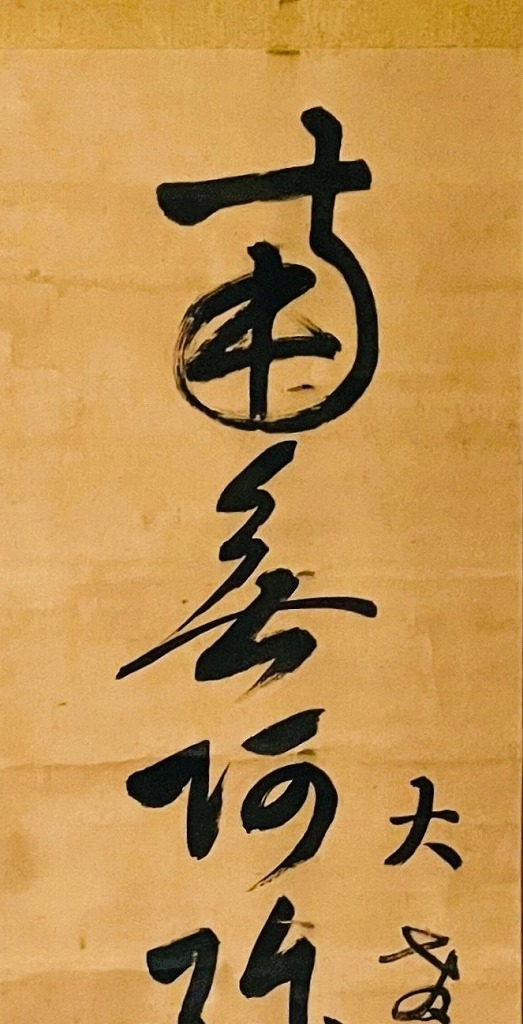 南無阿弥
大